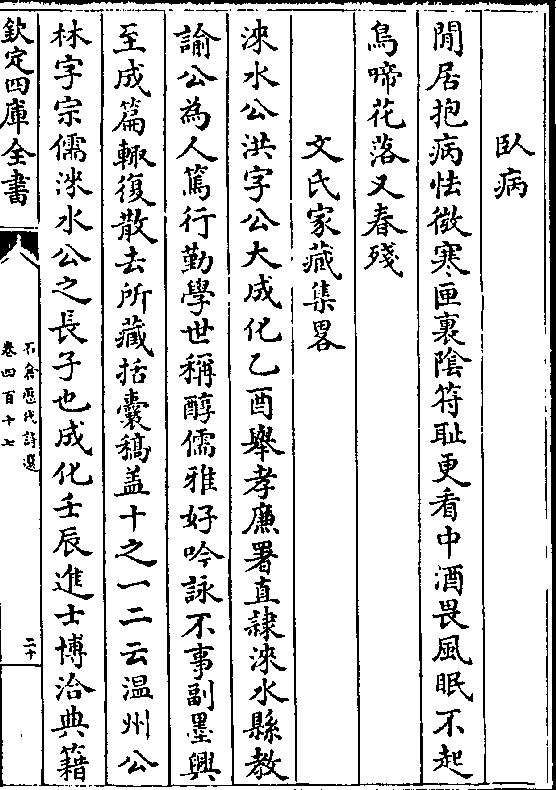 臥病
閒居抱病怯微寒匣裏陰符恥更看中酒畏風眠不起
鳥啼花落又春殘
文氏家藏集畧
淶水公洪字公大成化乙酉舉孝廉署直隸淶水縣教
諭公為人篤行勤學世稱醇儒雅好吟詠不事副墨興
至成篇輙復散去所藏括囊稿盖十之一二云温州公
林字宗儒淶水公之長子也成化壬辰進士博洽典籍
欽定四庫全書
石倉歷代詩選
卷四百十七
二十